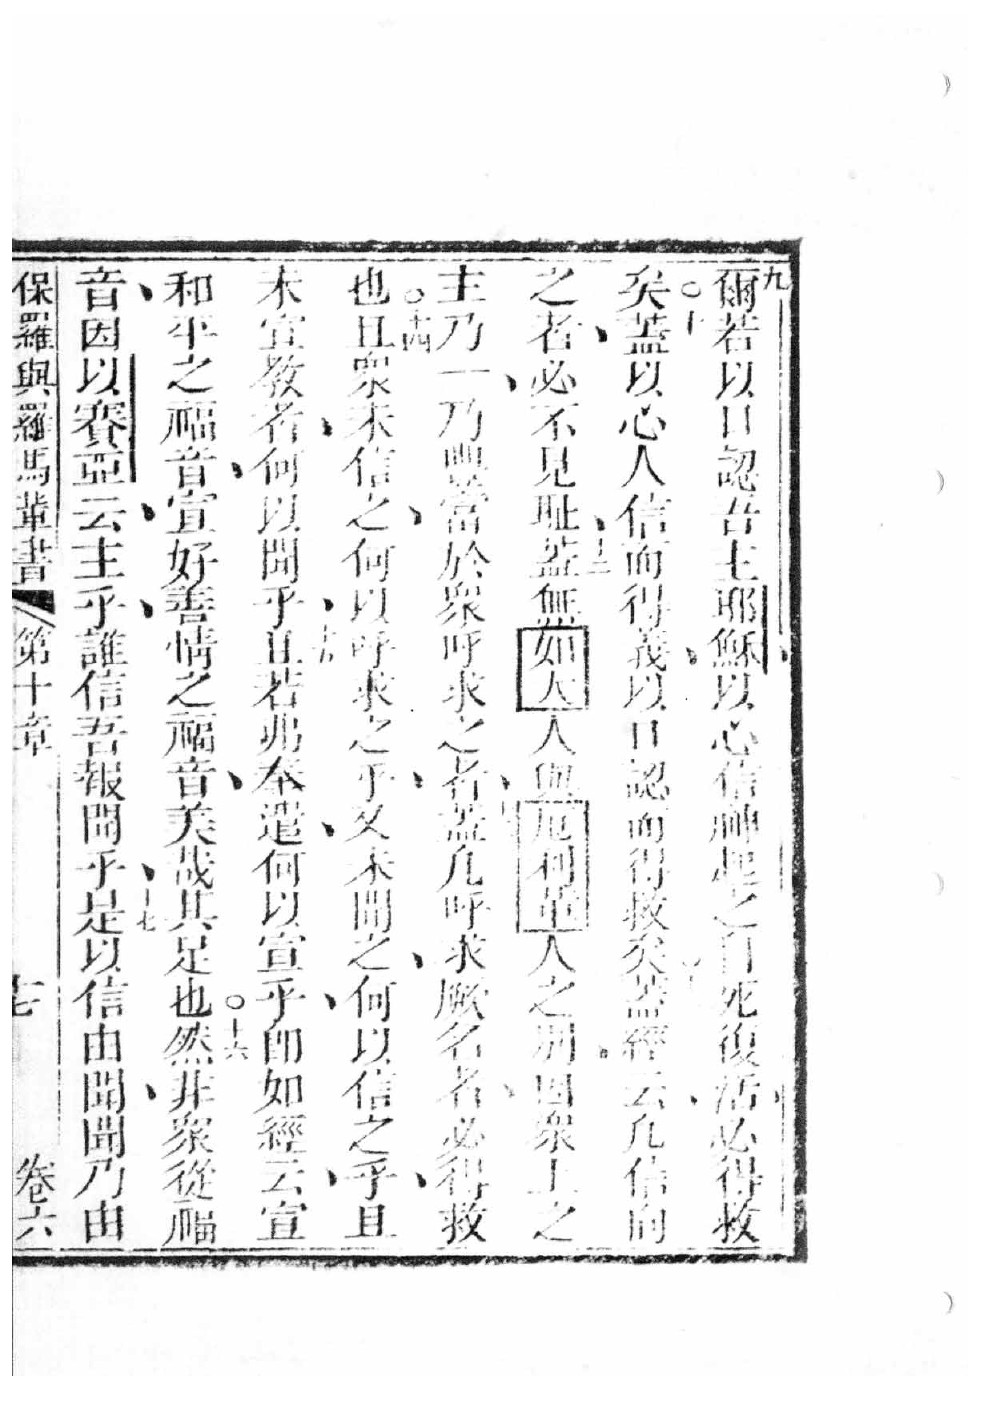 九爾若以口認吾主耶穌以心信神起之自死復活必得救
矣○十蓋以心人信而得義以口認而得救矣蓋經云凡信向
之者必不見恥十二蓋無如大人與厄利革人之別因眾主之
主乃一乃豐當於眾呼求之者蓋凡呼求厥名者必得救
也○十四且眾未信之何以呼求之乎又未聞之何以信之乎且
未宣教者何以聞乎十五且若弗奉遣何以宣乎即如經云宣
和平之福音宣好善情之福音美哉其足也○十六然非眾從福
音因以賽亞云主乎誰信吾報聞乎十七是以信由聞聞乃由
保羅與羅馬輩書 第十章 七 卷六